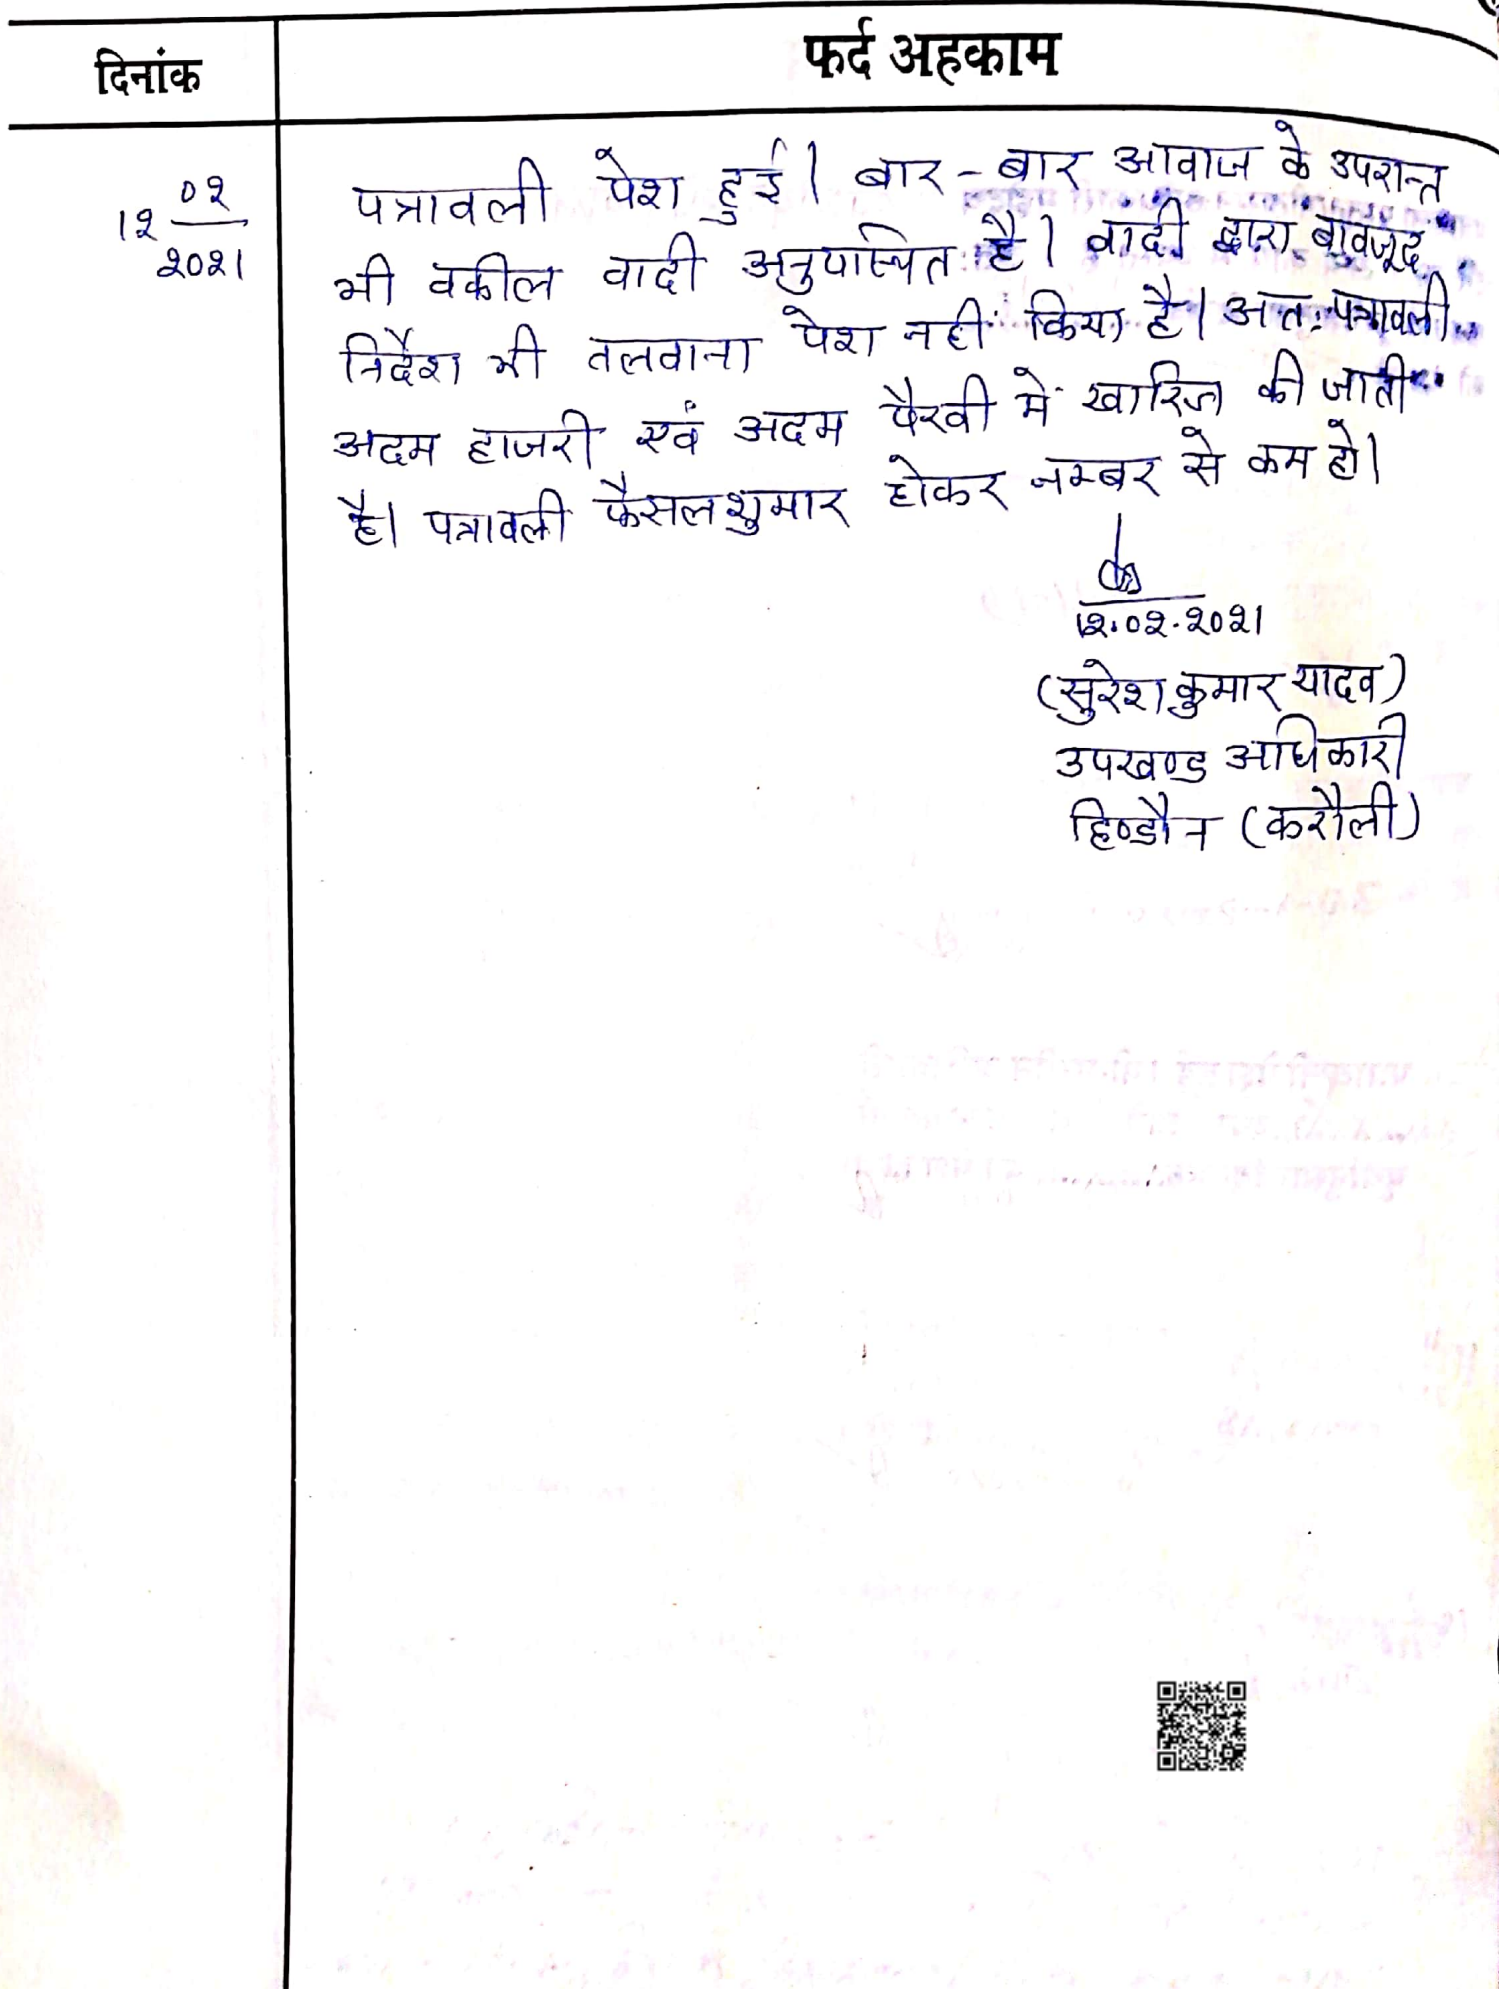 दिनांक
फर्द अहकाम
12 02
2021
पत्रावली पेश हुई। बार-बार आवाज के उपरान्त
भी वकील वादी अनुपस्थित है। वादी द्वारा बावजूद
निर्देश भी तलवाना पेश नहीं किया है। अतः पत्रावली
अदम हाजरी एवं अदम पैरवी में खारिज की जाती
है। पत्रावली फैसल शुमार होकर नम्बर से कम हो।
12.02.2021
(सुरेश कुमार यादव)
उपखण्ड अधिकारी
हिण्डौन (करौली)